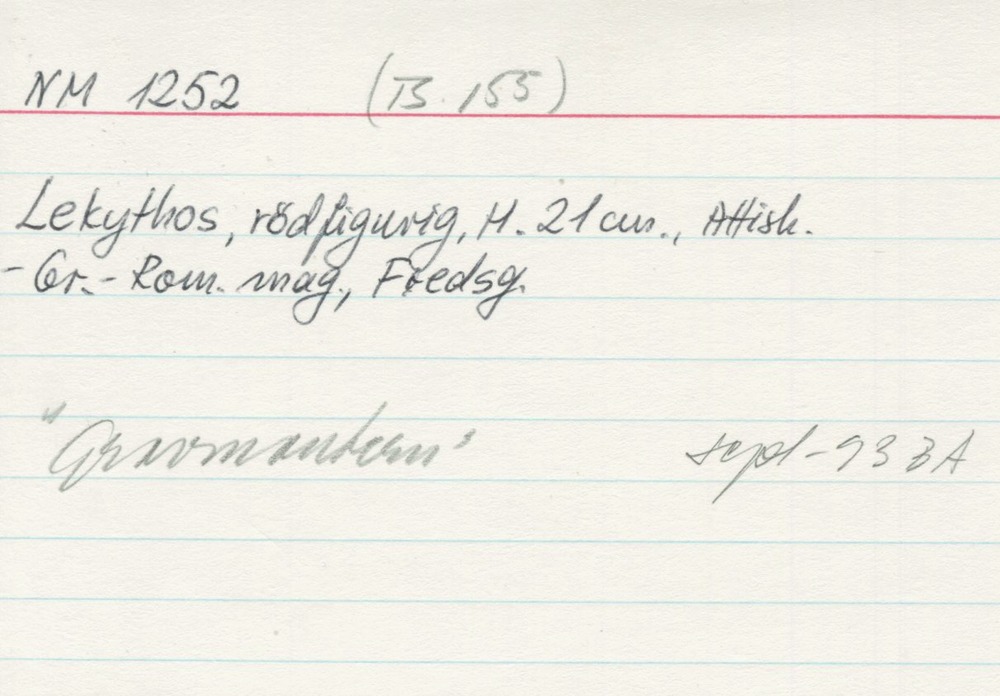 NM 1252 (B. 155)
Lekythos, rödfigurig, H. 21 cm., Attisk.
- Gr.- Rom. mag., Fredsg.
"Gravmontern" sept-93 BA